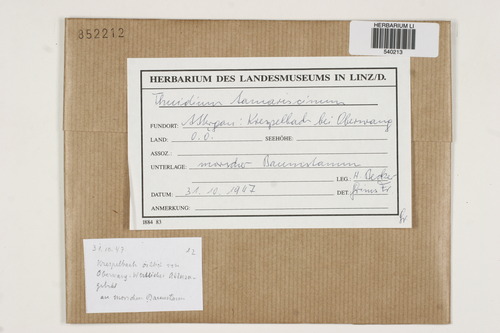 852212
HERBARIUM LI
540213
HERBARIUM DES LANDESMUSEUMS IN LINZ/D.
Thuidium tamariscinum
FUNDORT: Attergau: Krenzelbach bei Oberwang
LAND: O.Ö. SEEHÖHE:
ASSOZ.:
UNTERLAGE: morscher Baumstamm
LEG.: H. Becker
DATUM: 31. 10. 1947 DET.: Grims Fr.
ANMERKUNG:
1884 83
31.10.47
Krenzelbach östlich von
Oberwang
gebiet
an morschem Baumstamm